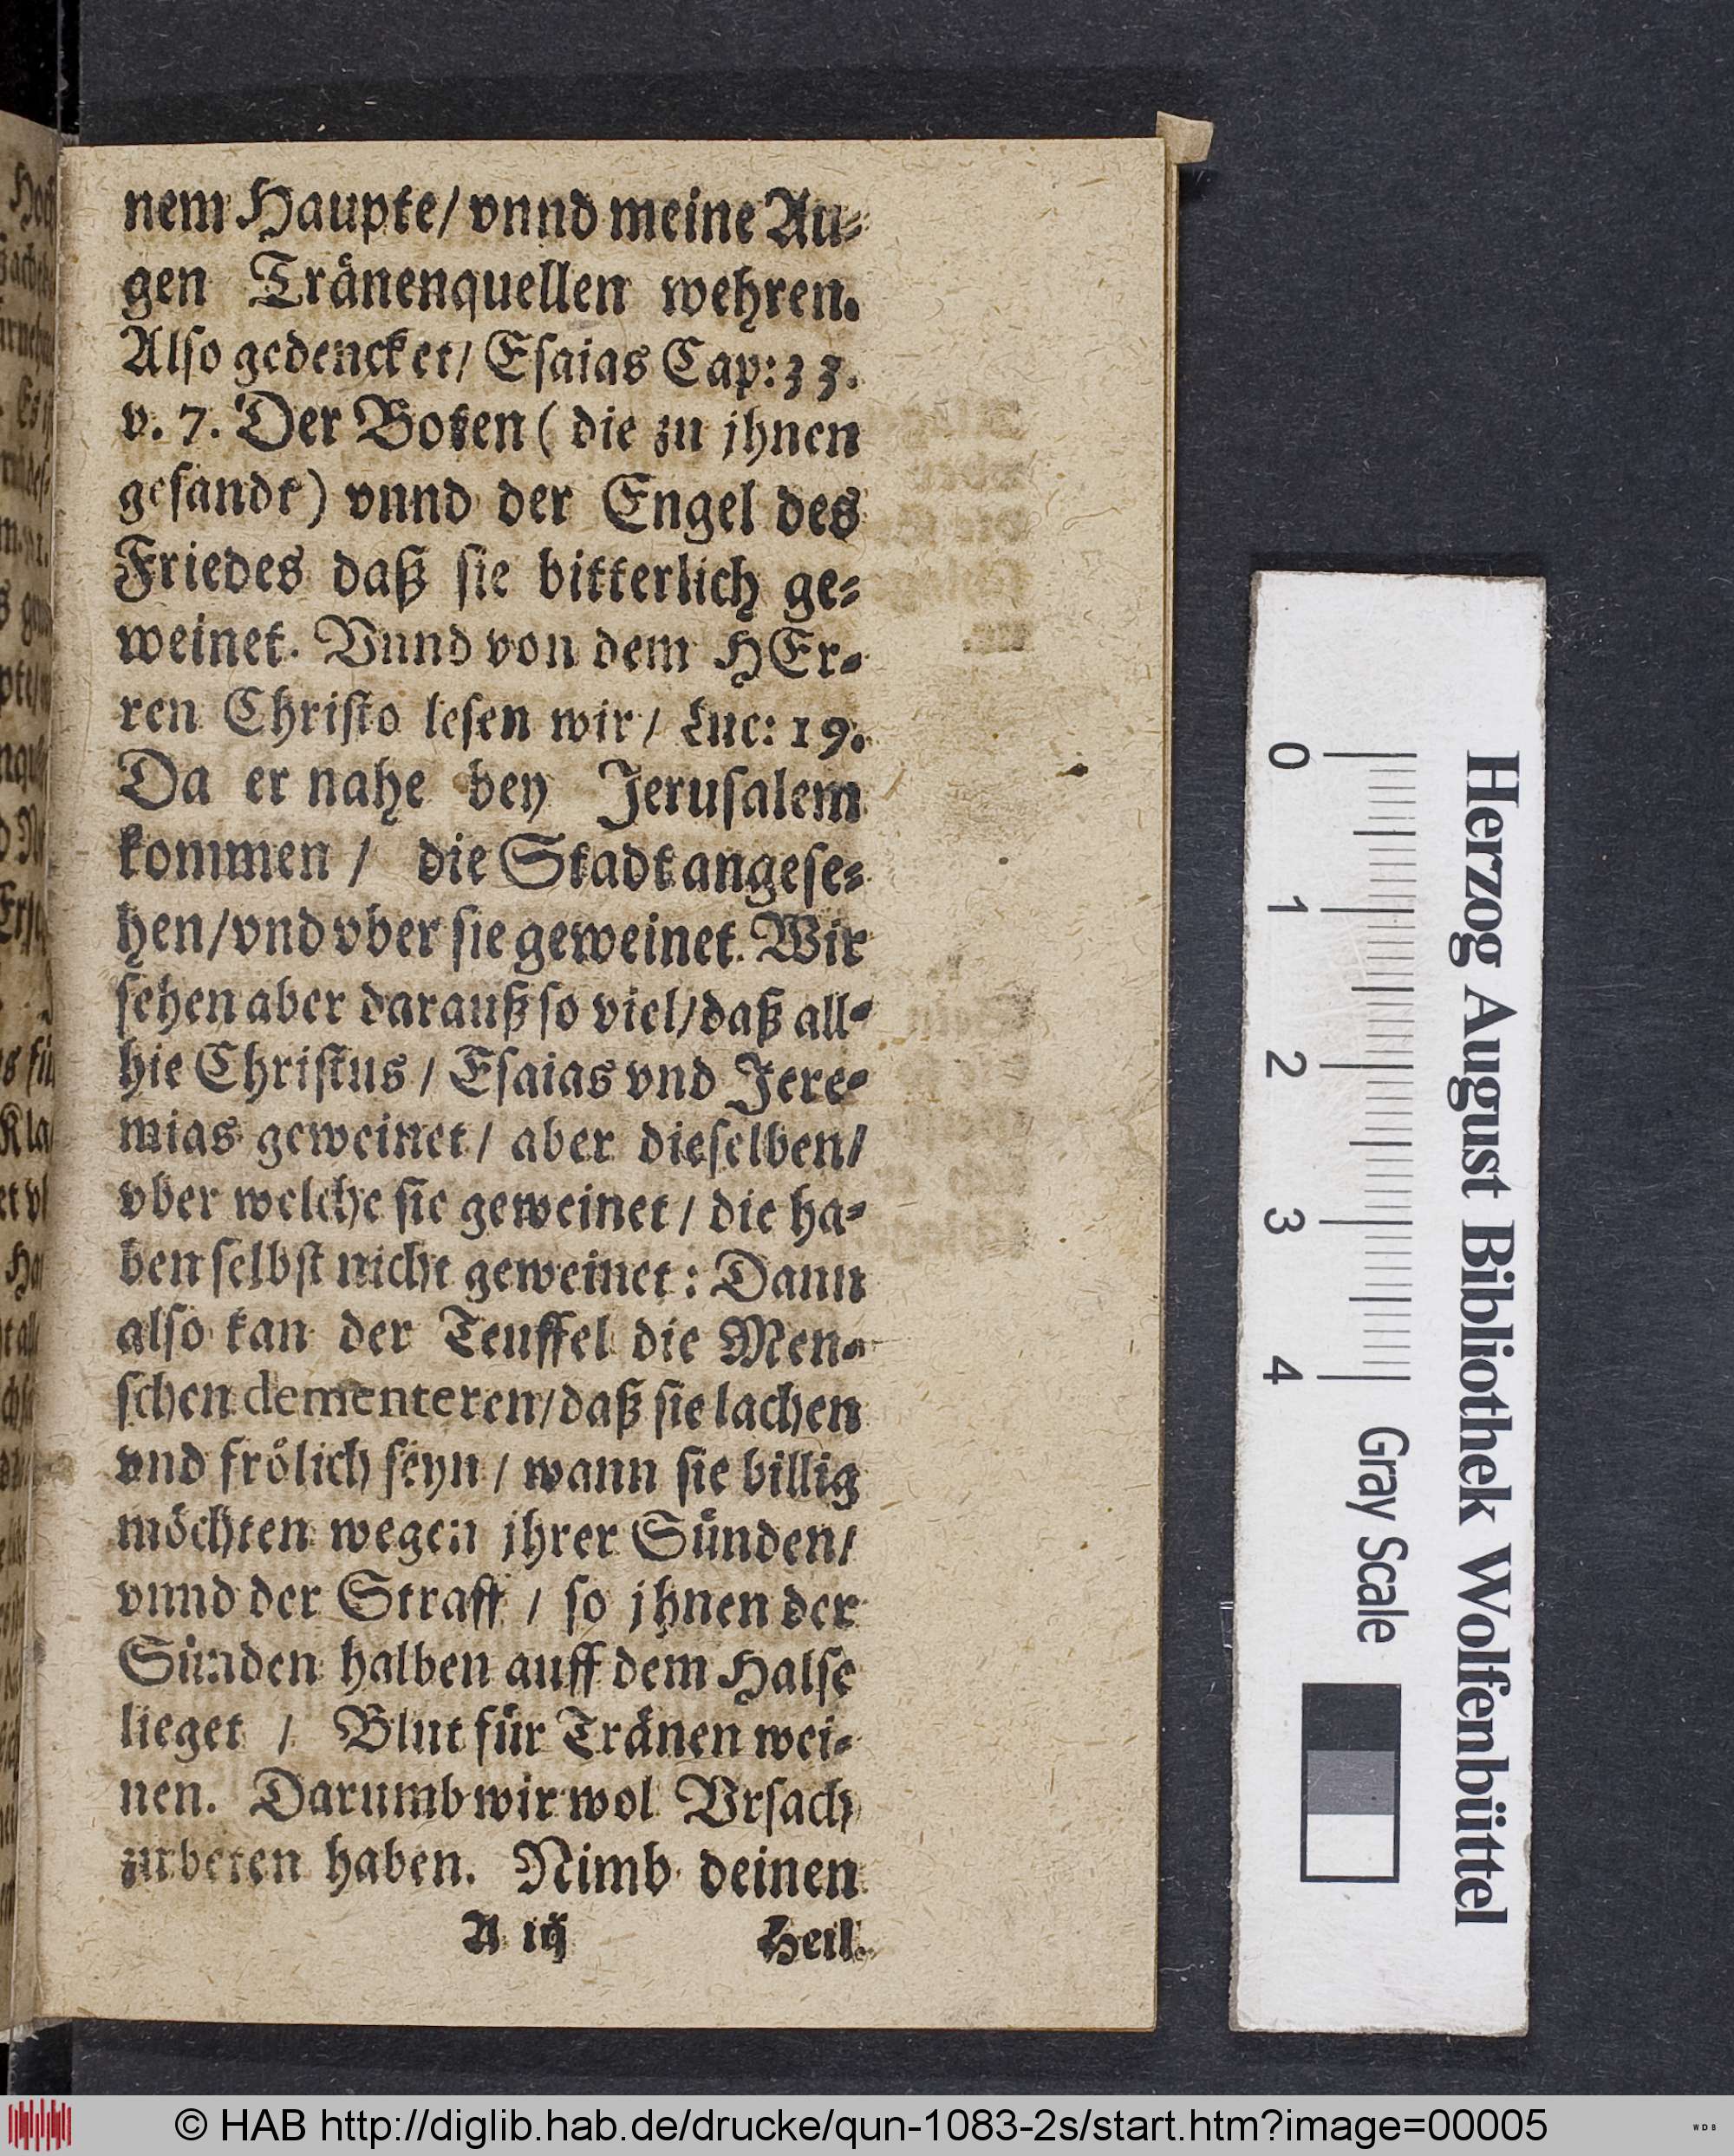 nem Haupte/ vnnd meine Au-
gen Tränenquellen wehren.
Also gedencket/ Esaias Cap: 33.
v. 7. Der Boten ( die zu jhnen
gesandt) vnnd der Engel des
Friedes daß sie bitterlich ge-
weinet. Vnnd von dem HEr-
ren Christo lesen wir/ Luc: 19.
Da er nahe bey Jerusalem
kommen / die Stadt angese-
hen/ vnd vber sie geweinet. Wir
sehen aber darauß so viel/ daß all-
hie Christus / Esaias vnd Jere-
mias geweinet/ aber dieselben/
vber welche sie geweinet / die ha-
ben selbst nicht geweinet : Dann
also kan der Teuffel die Men-
schen dementeren/ daß sie lachen
vnd frölich seyn / wann sie billig
möchten wegen jhrer Sünden/
vnnd der Straff / so jhnen der
Sünden halben auff dem Halse
lieget / Blut für Tränen wei-
nen. Darumb wir wol Vrsach
zu beten haben. Nimb deinen
A iij Heil.
Herzog August Bibliothek Wolfenbüttel
0 1 2 3 4 Gray Scale
© HAB http://diglib.hab.de/drucke/qun-1083-2s/start.htm?image=00005
WDB